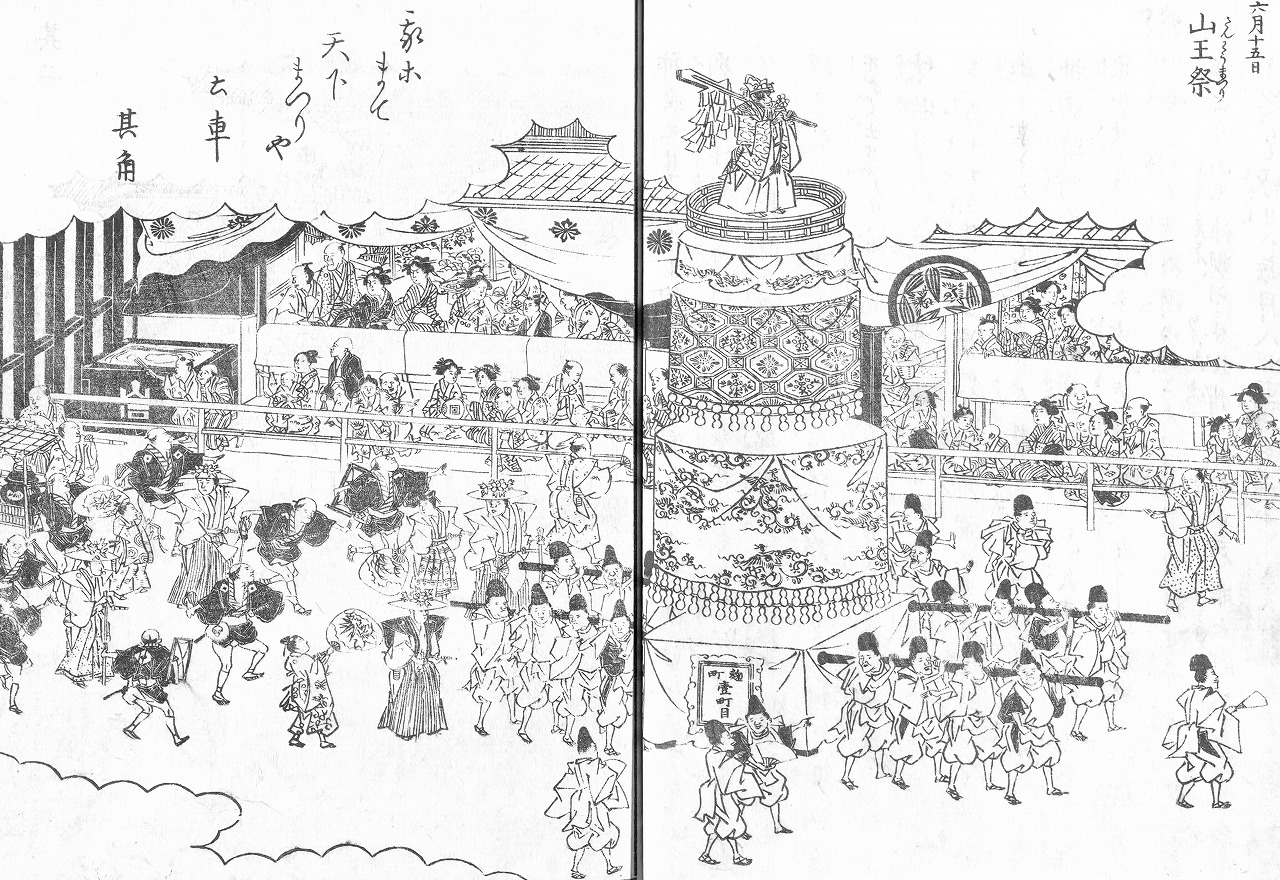 六月十五日
さんわうまつり
山王祭
我等
まて
天下
まつり
や
土車
其角
麹町
壹町目